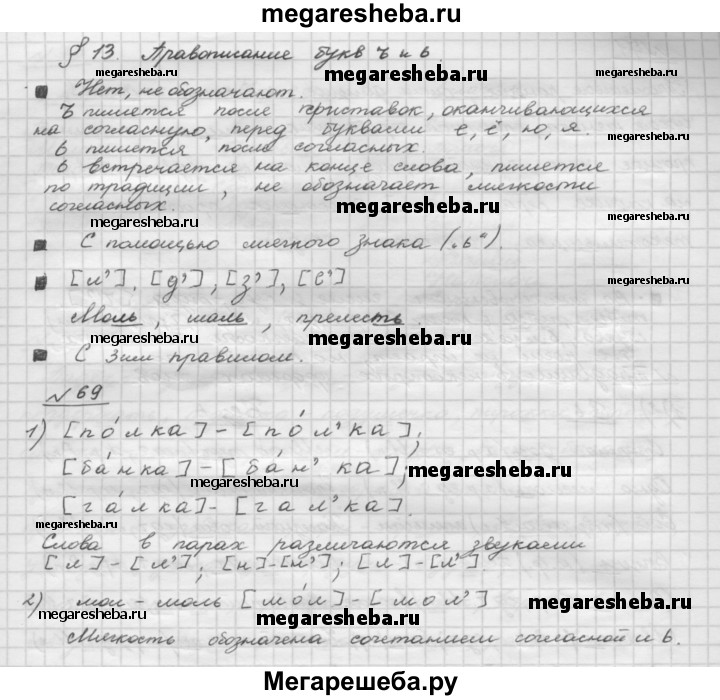 megaresheba.ru
§ 13. Правописание букв ъ и ь
megaresheba.ru megaresheba.ru
Нет, не обозначают. megaresheba.ru
Ъ пишется после приставок, оканчивающихся
на согласную, перед буквами е, ё, ю, я.
ь пишется после согласных.
ь встречается на конце слова, пишется
по традиции, не обозначает мягкости
согласных. megaresheba.ru
megaresheba.ru
С помощью мягкого знака („ь“).
[л'], [д'], [з'], [с'] megaresheba.ru
Моль, шаль, прелесть
megaresheba.ru megaresheba.ru
С 3им правилом.
№ 69
1) [по́лка] - [по́л'ка];
[ба́нка] - [ба́н'ка]; megaresheba.ru
megaresheba.ru
[га́лка] - [гал'ка].
megaresheba.ru
Слова в парах различаются звуками
[л] - [л']; [н] - [н']; [л] - [л']
2) мол - моль [мо́л] - [мол'] megaresheba.ru
megaresheba.ru megaresheba.ru
Мягкость обозначена сочетанием согласной и ь.
Мегарешеба.ру